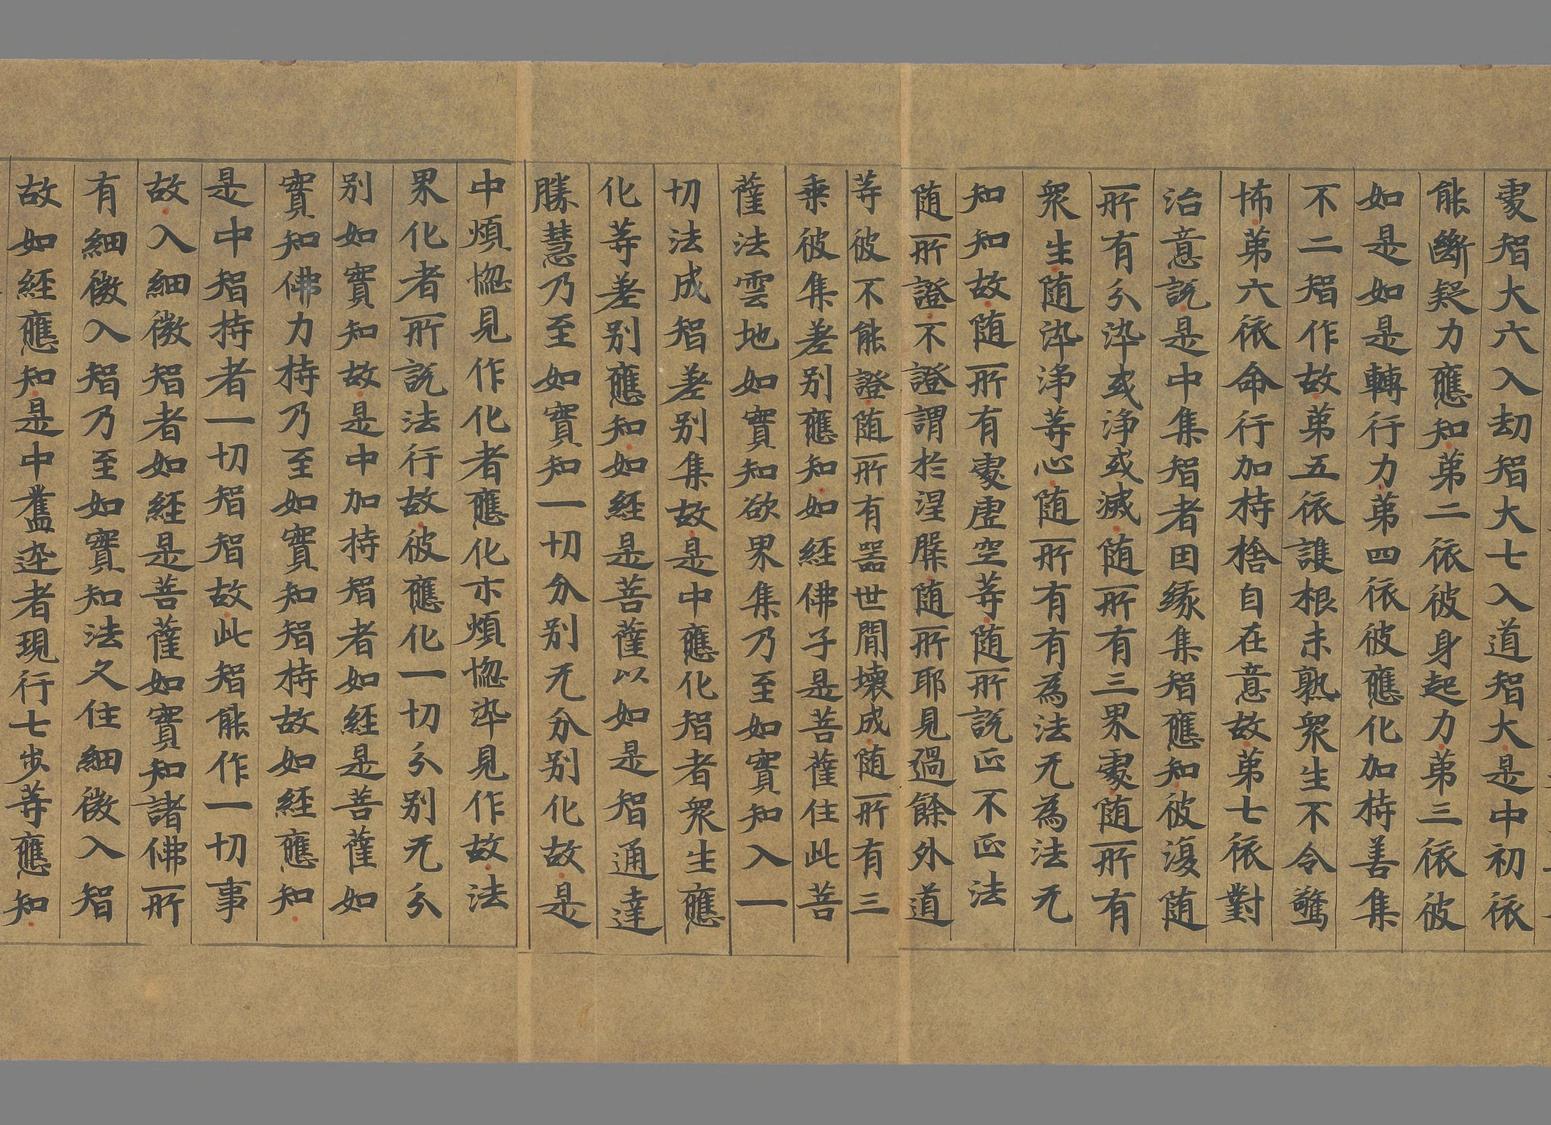 處智大六入劫智大七入道智大是中初依
能斷疑力應知第二依彼身起力第三依彼
如是如是轉行力第四依彼應化加持善集
不二智作故第五依誰根未孰衆生不令驚
怖第六依命行加持捨自在意故第七依對
治意説是中集智者因緣集智應知彼復隨
所有分染或淨或滅隨所有三界處隨所有
衆生隨染淨等心隨所有有為法无為法无
知知故隨所有處虛空等隨所説正不正法
隨所證不證謂於涅槃隨所耶見過餘外道
等彼不能證隨所有器世間壞成隨所有三
乘彼集差别應知如經佛子是菩薩住此菩
薩法雲地如實知欲界集乃至如實知入一
切法成智差别集故是中應化智者衆生應
化等差别應知如經是菩薩以如是智通達
勝慧乃至如實知一切分别无分别化故是
中煩惱見作化者應化亦煩惱染見作故法
界化者所説法行故彼應化一切分别无分
别如實知故是中加持智者如經是菩薩如
實知佛力持乃至如實知智持故如經應知
是中智持者一切智智故此智能作一切事
故入細微智者如經是菩薩如實知諸佛所
有細微入智乃至如實知法久住細微入智
故如經應知是中舊迹者現行七步等應知